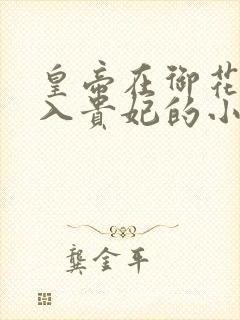 皇帝在御花
入贵妃的小
龚金平